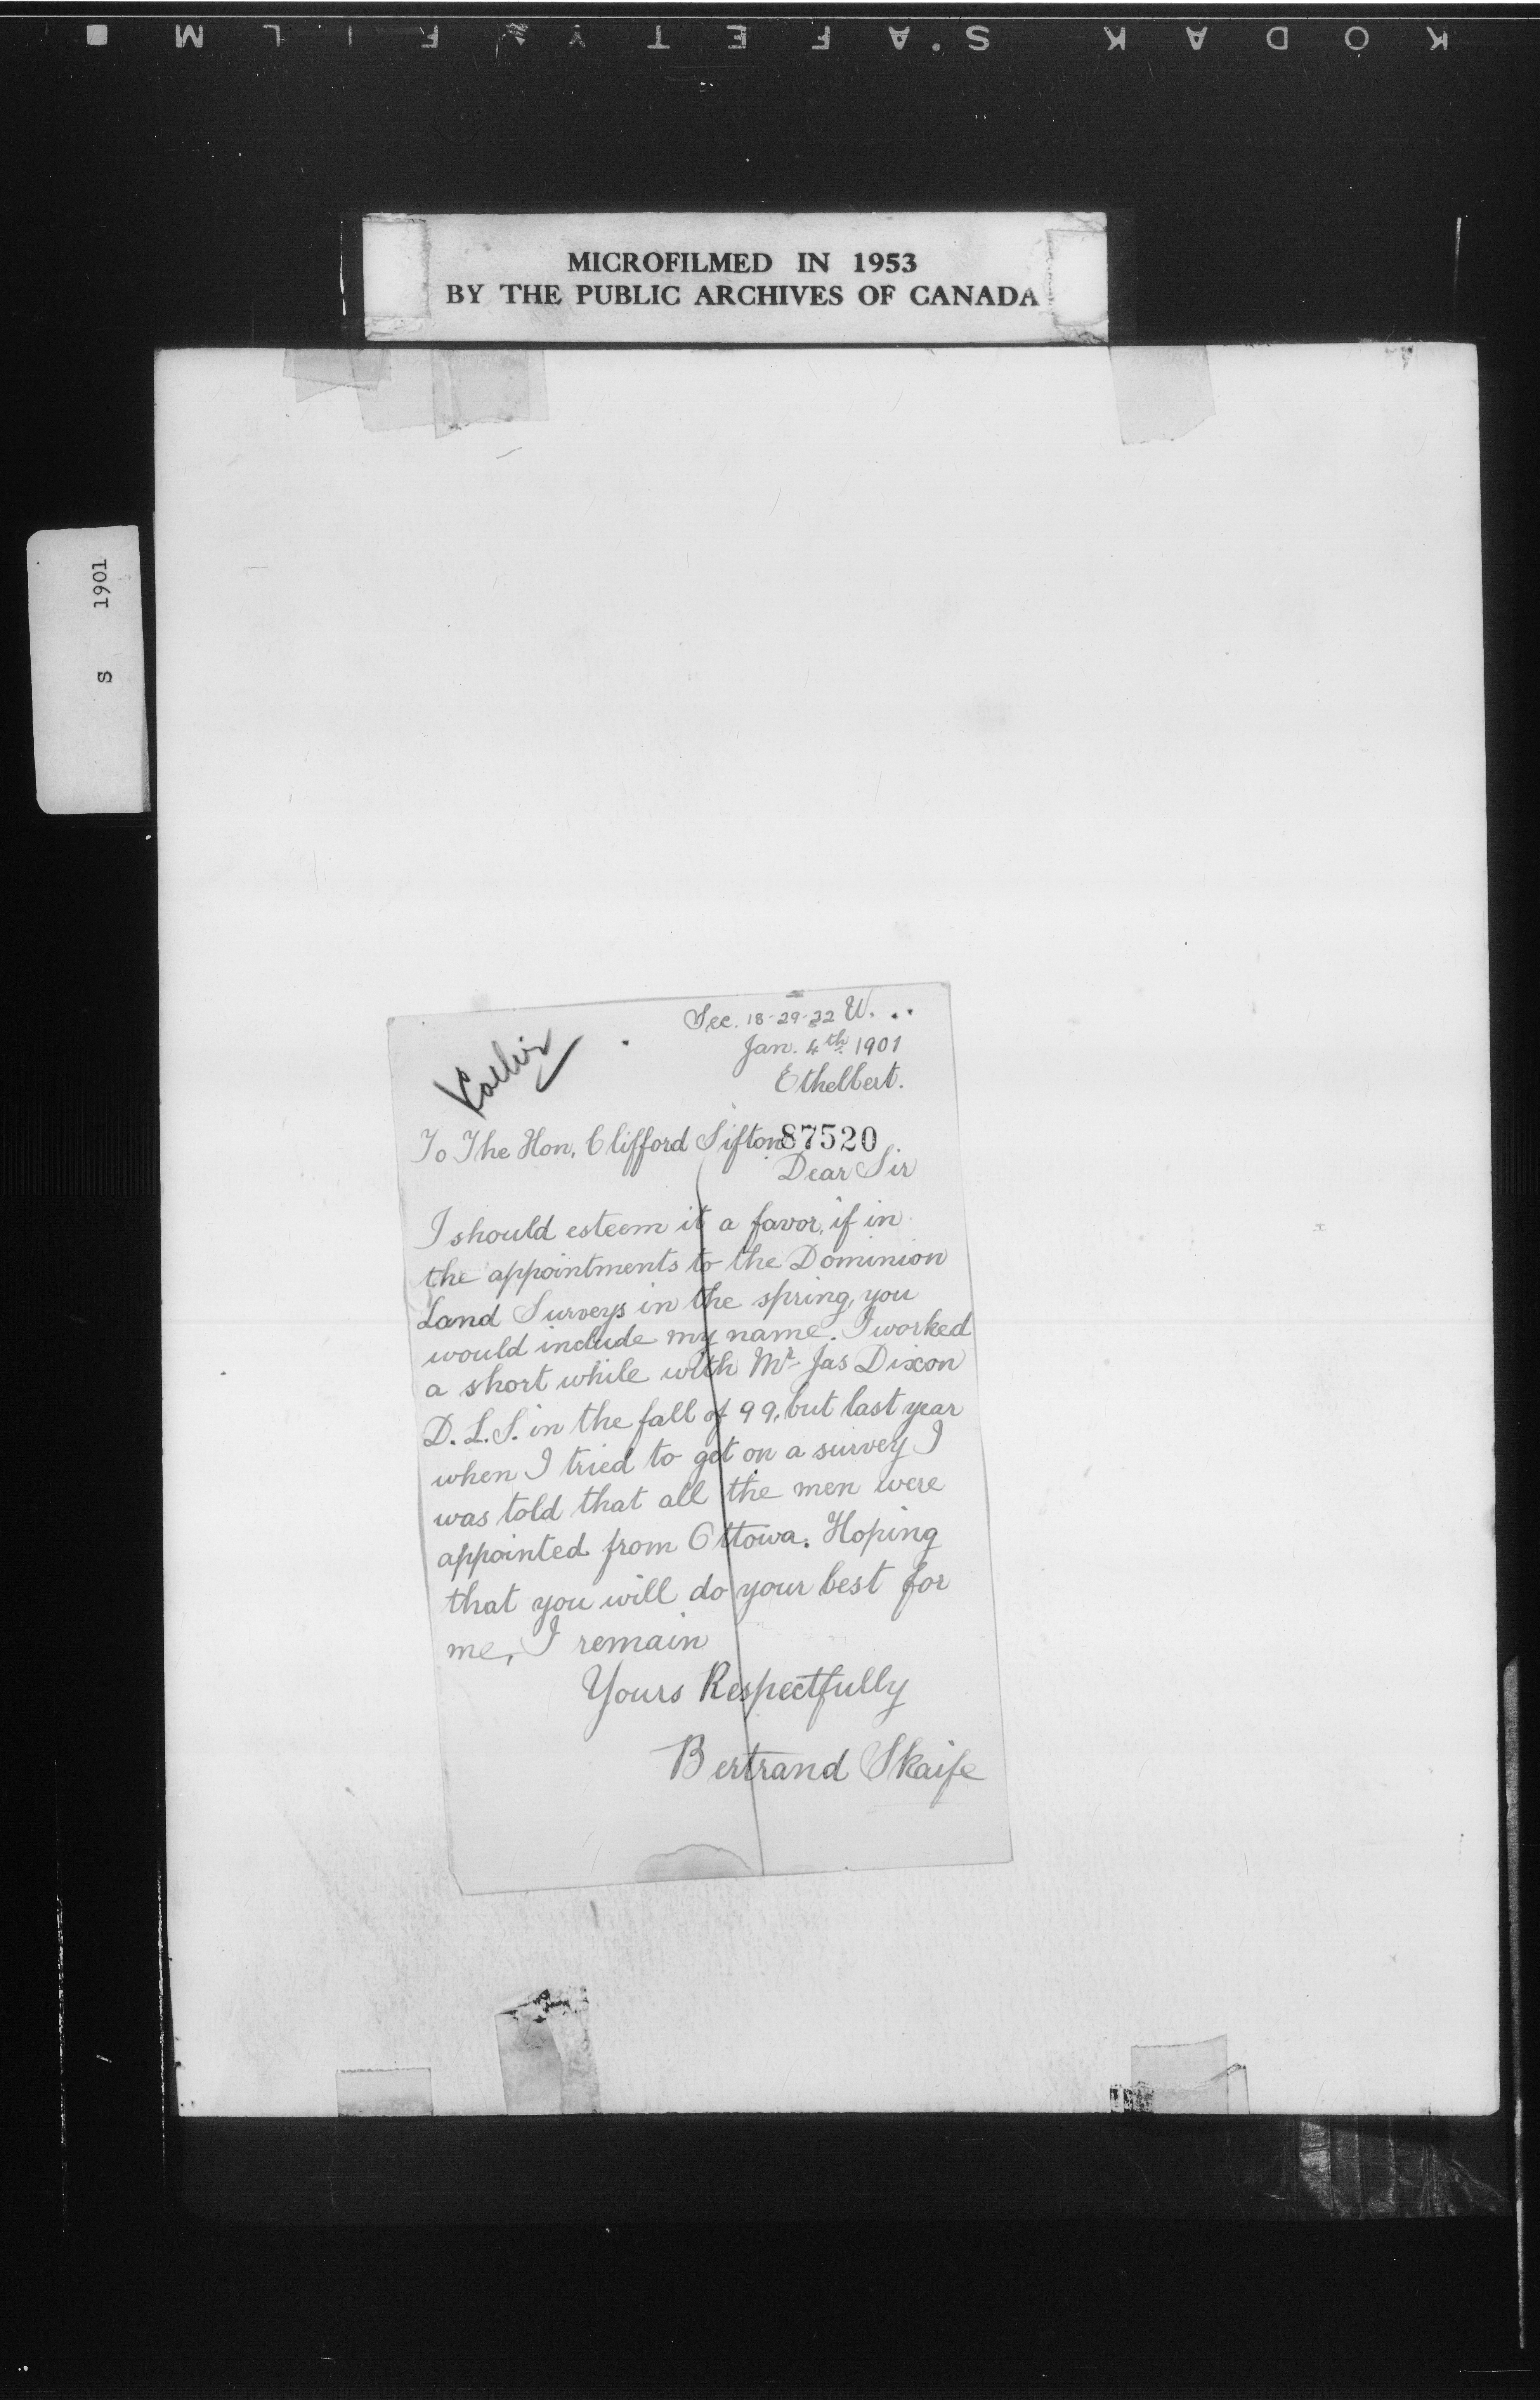 KODAK SAFETY FILM
MICROFILMED IN 1953
BY THE PUBLIC ARCHIVES OF CANADA
S 1901
Sec. 18-29-22 W.
Jan. 4th 1901
Ethelbert.
To The Hon. Clifford Sifton
87520
Dear Sir
I should esteem it a favor, if in
the appointments to the Dominion
Land Surveys in the spring, you
would include my name. I worked
a short while with Mr Jas Dixon
D. L. S. in the fall of 99, but last year
when I tried to get on a survey I
was told that all the men were
appointed from Ottowa. Hoping
that you will do your best for
me, I remain
Yours Respectfully
Bertrand Skaife